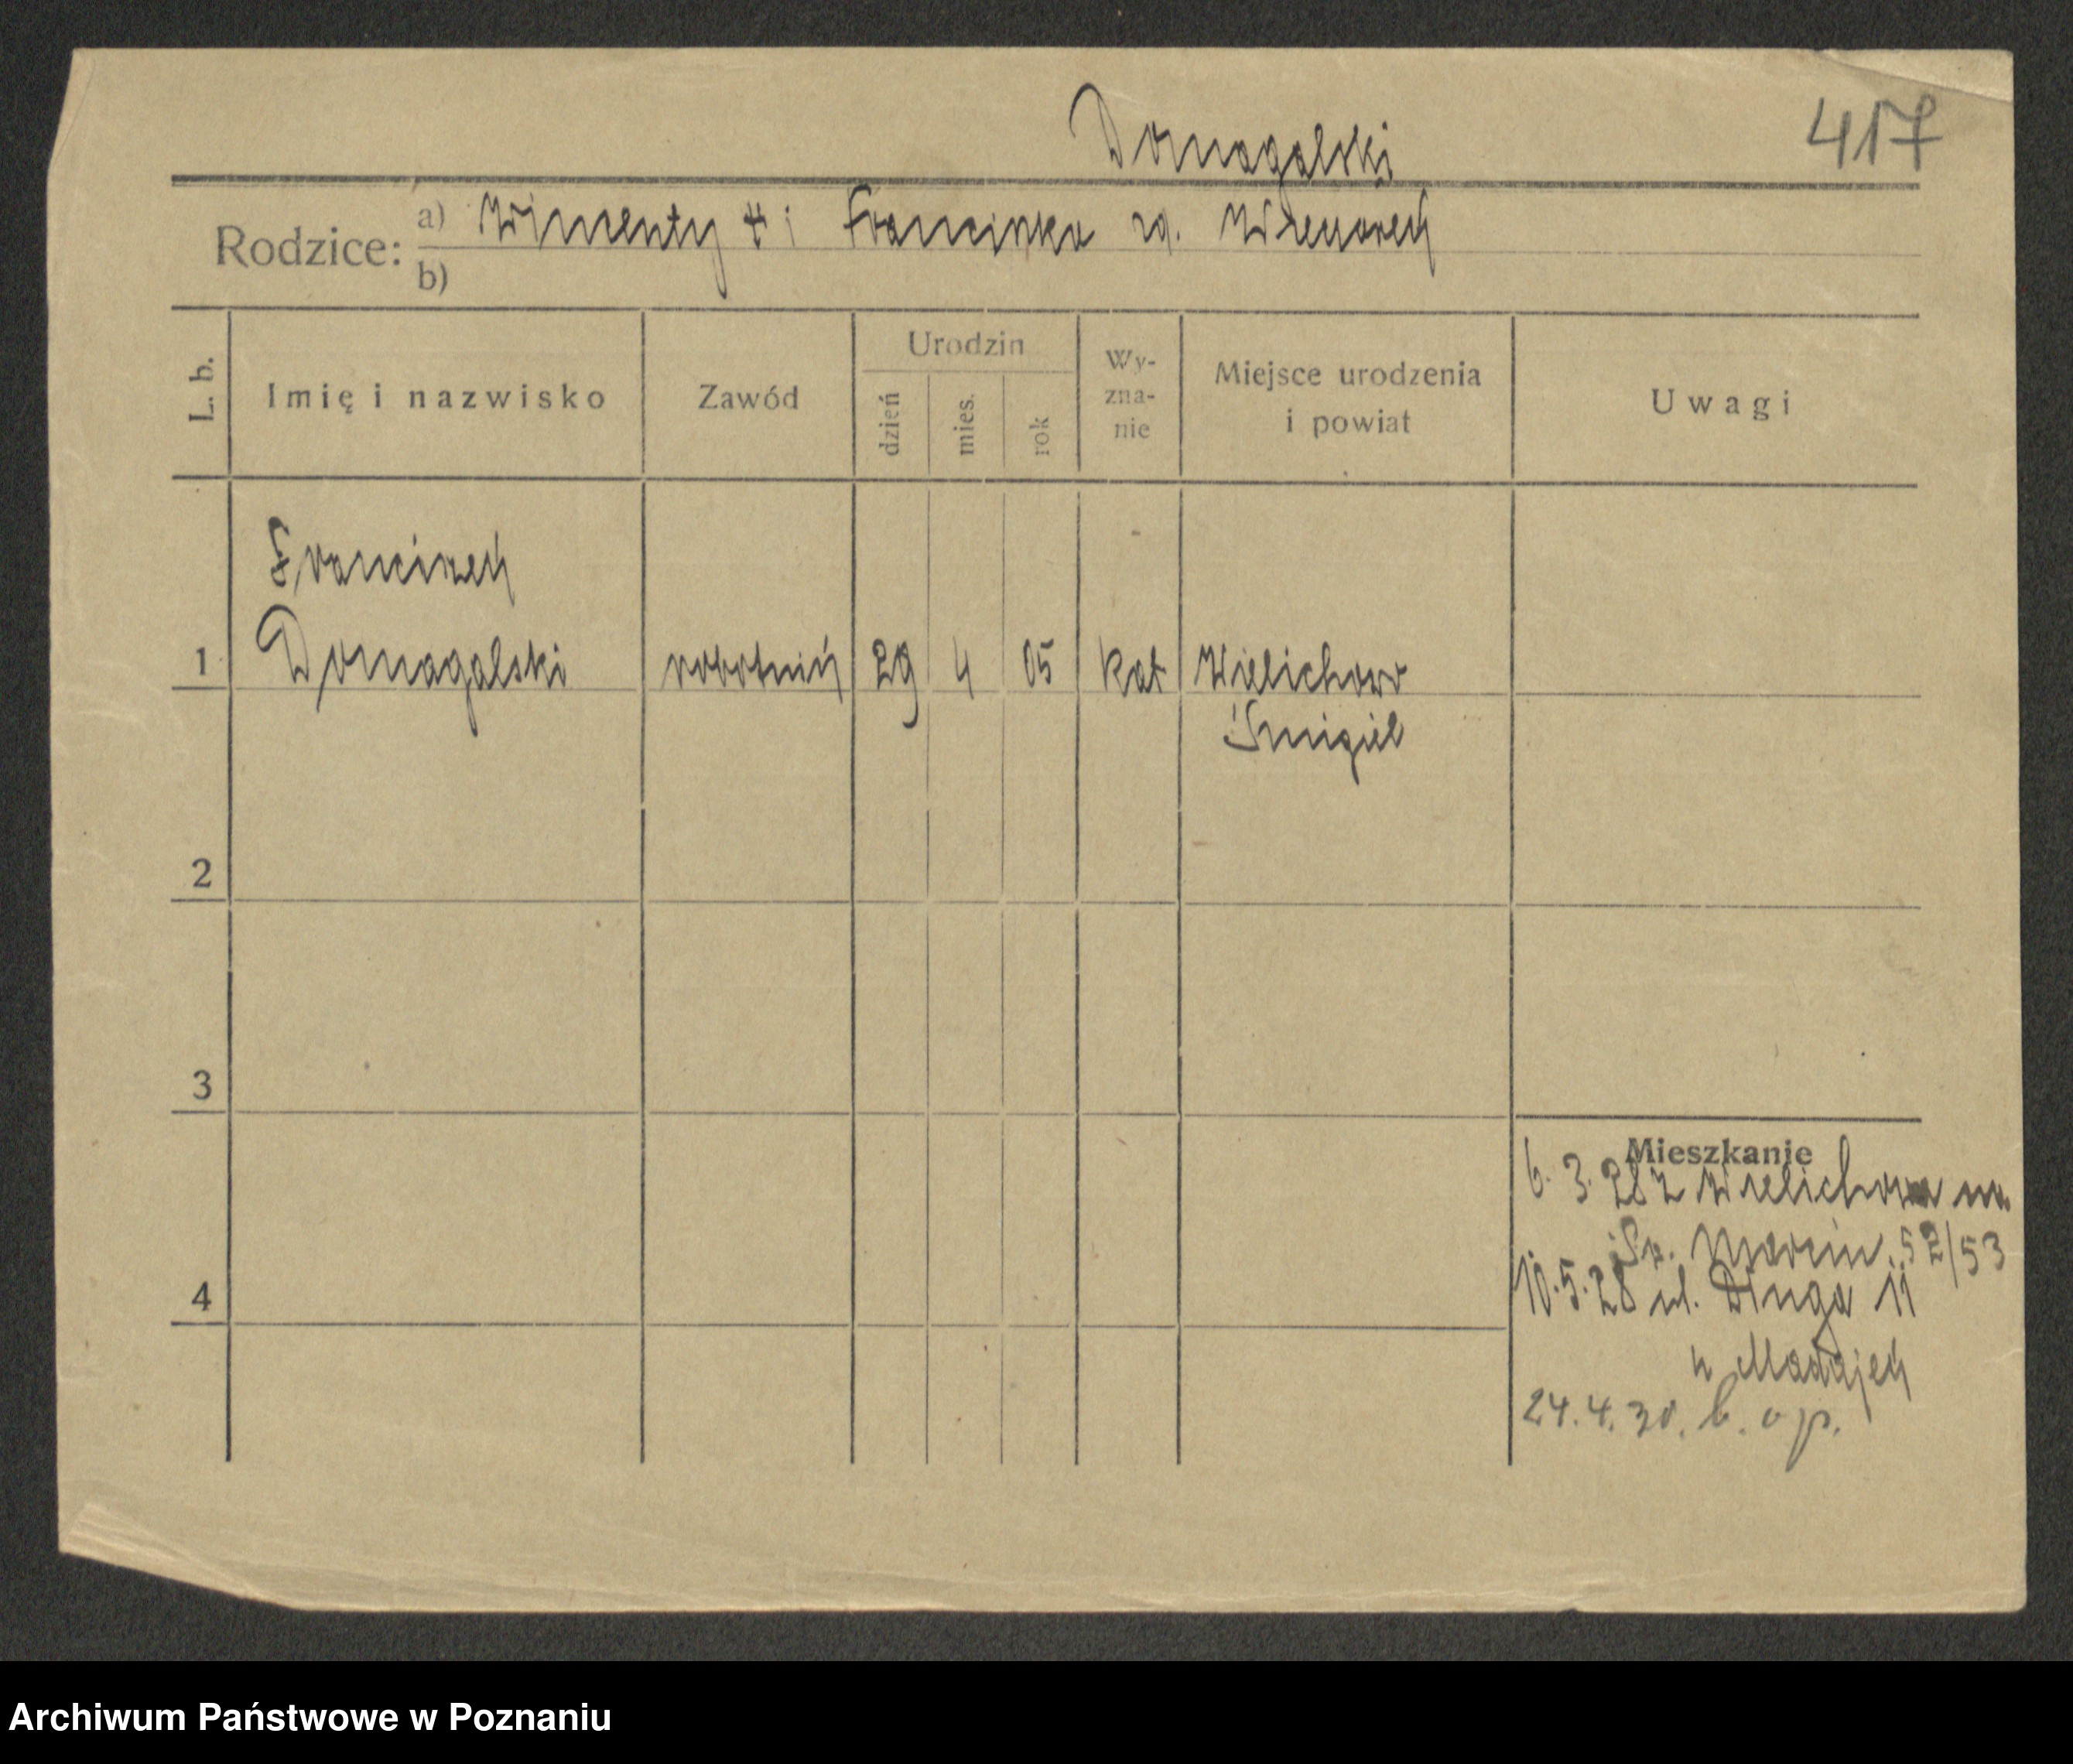 Domagalski
417
Rodzice: a) Wincenty † i Franciszka zd.
b)
L. b. Imię i nazwisko Zawód Urodzin dzień mies. rok Wy-zna-nie Miejsce urodzenia i powiat Uwagi
Franciszek
1 Domagalski robotnik 29 4 05 kat Wielichowo
Śmigiel
2
3
Mieszkanie
6.3.28 z Wielichowa na
Św. Marcin 52/53
10.5.28 ul. Długa 11
4
u
24.4.30. b. o p.
Archiwum Państwowe w Poznaniu